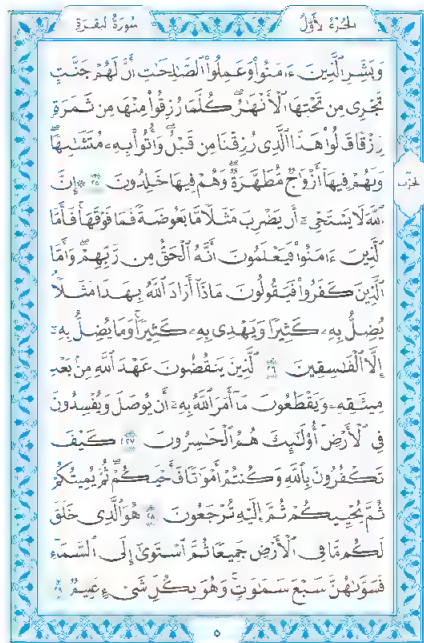 سُورَةُ البَقَرَةِ
الجُزْءُ الأَوَّلُ
وَبَشِّرِ الَّذِينَ ءَامَنُوا وَعَمِلُوا الصَّالِحَاتِ أَنَّ لَهُمْ جَنَّاتٍ
تَجْرِي مِن تَحْتِهَا الْأَنْهَارُ كُلَّمَا رُزِقُوا مِنْهَا مِن ثَمَرَةٍ
رِّزْقًا قَالُوا هَذَا الَّذِي رُزِقْنَا مِن قَبْلُ وَأُتُوا بِهِ مُتَشَابِهًا
وَلَهُمْ فِيهَا أَزْوَاجٌ مُّطَهَّرَةٌ وَهُمْ فِيهَا خَالِدُونَ ٢٥ ۞ إِنَّ
اللَّهَ لَا يَسْتَحْيِ أَن يَضْرِبَ مَثَلًا مَّا بَعُوضَةً فَمَا فَوْقَهَا فَأَمَّا
الَّذِينَ ءَامَنُوا فَيَعْلَمُونَ أَنَّهُ الْحَقُّ مِن رَّبِّهِمْ وَأَمَّا
الَّذِينَ كَفَرُوا فَيَقُولُونَ مَاذَا أَرَادَ اللَّهُ بِهَذَا مَثَلًا
يُضِلُّ بِهِ كَثِيرًا وَيَهْدِي بِهِ كَثِيرًا وَمَا يُضِلُّ بِهِ
إِلَّا الْفَاسِقِينَ ٢٦ الَّذِينَ يَنقُضُونَ عَهْدَ اللَّهِ مِن بَعْدِ
مِيثَاقِهِ وَيَقْطَعُونَ مَا أَمَرَ اللَّهُ بِهِ أَن يُوصَلَ وَيُفْسِدُونَ
فِي الْأَرْضِ أُولَئِكَ هُمُ الْخَاسِرُونَ ٢٧ كَيْفَ
تَكْفُرُونَ بِاللَّهِ وَكُنتُمْ أَمْوَاتًا فَأَحْيَاكُمْ ثُمَّ يُمِيتُكُمْ
ثُمَّ يُحْيِيكُمْ ثُمَّ إِلَيْهِ تُرْجَعُونَ ٢٨ هُوَ الَّذِي خَلَقَ
لَكُم مَّا فِي الْأَرْضِ جَمِيعًا ثُمَّ اسْتَوَى إِلَى السَّمَاءِ
فَسَوَّاهُنَّ سَبْعَ سَمَاوَاتٍ وَهُوَ بِكُلِّ شَيْءٍ عَلِيمٌ ٢٩
٥